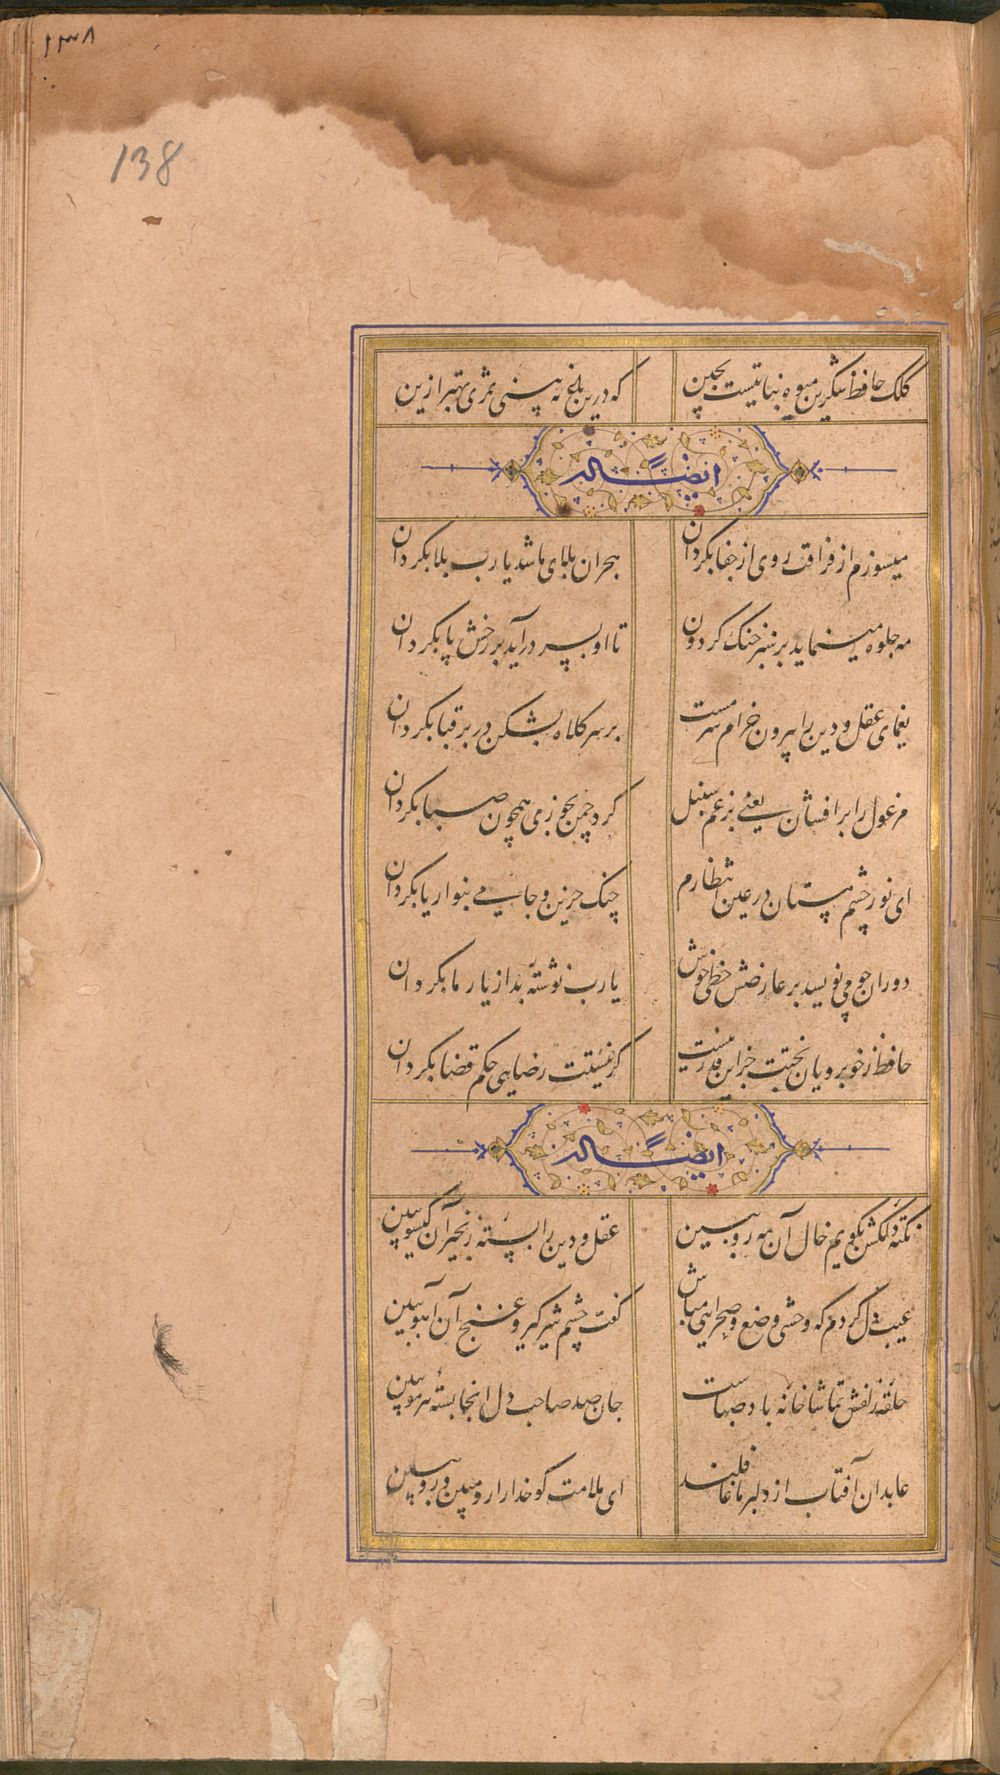 ۱۳۸
138
کلک حافظ شکرین میوه نباتیست بچین که درین باغ نه بینی ثمری بهتر ازین
ایضاً له
میسوزم از فراقت روی از جفا بگردان هجران بلای ما شد یارب بلا بگردان
مه جلوه مینماید بر سبز خنک گردون تا او بسر درآید بر رخش پا بگردان
یغمای عقل و دین را بیرون خرام سرمست بر سر کلاه بشکن در بر قبا بگردان
مرغول را برافشان یعنی بزعم سنبل کرد چمن بخوری همچون صبا بگردان
ای نور چشم مستان در عین انتظارم چنک حزین و جامی بنواز یا بگردان
دوران چو می نویسد بر عارضش خطی خوش یارب نوشته بد از یار ما بگردان
حافظ ز خوبرویان بختت جز این قدر نیست گر نیستت رضایی حکم قضا بگردان
ایضاً له
نکته دلکش بگویم خال آن مه رو ببین عقل و دین را بسته زنجیر آن گیسو ببین
عیب دل کردم که وحشی وضع و صحرایی مباش گفت چشم شیرگیر و غنج آن آهو ببین
حلقه زلفش تماشاخانه باد صباست جان صد صاحب دل انجا بسته مو ببین
عابدان آفتاب از دلبر ما غافلند ای ملامت کو خدا را رو مبین و رو ببین